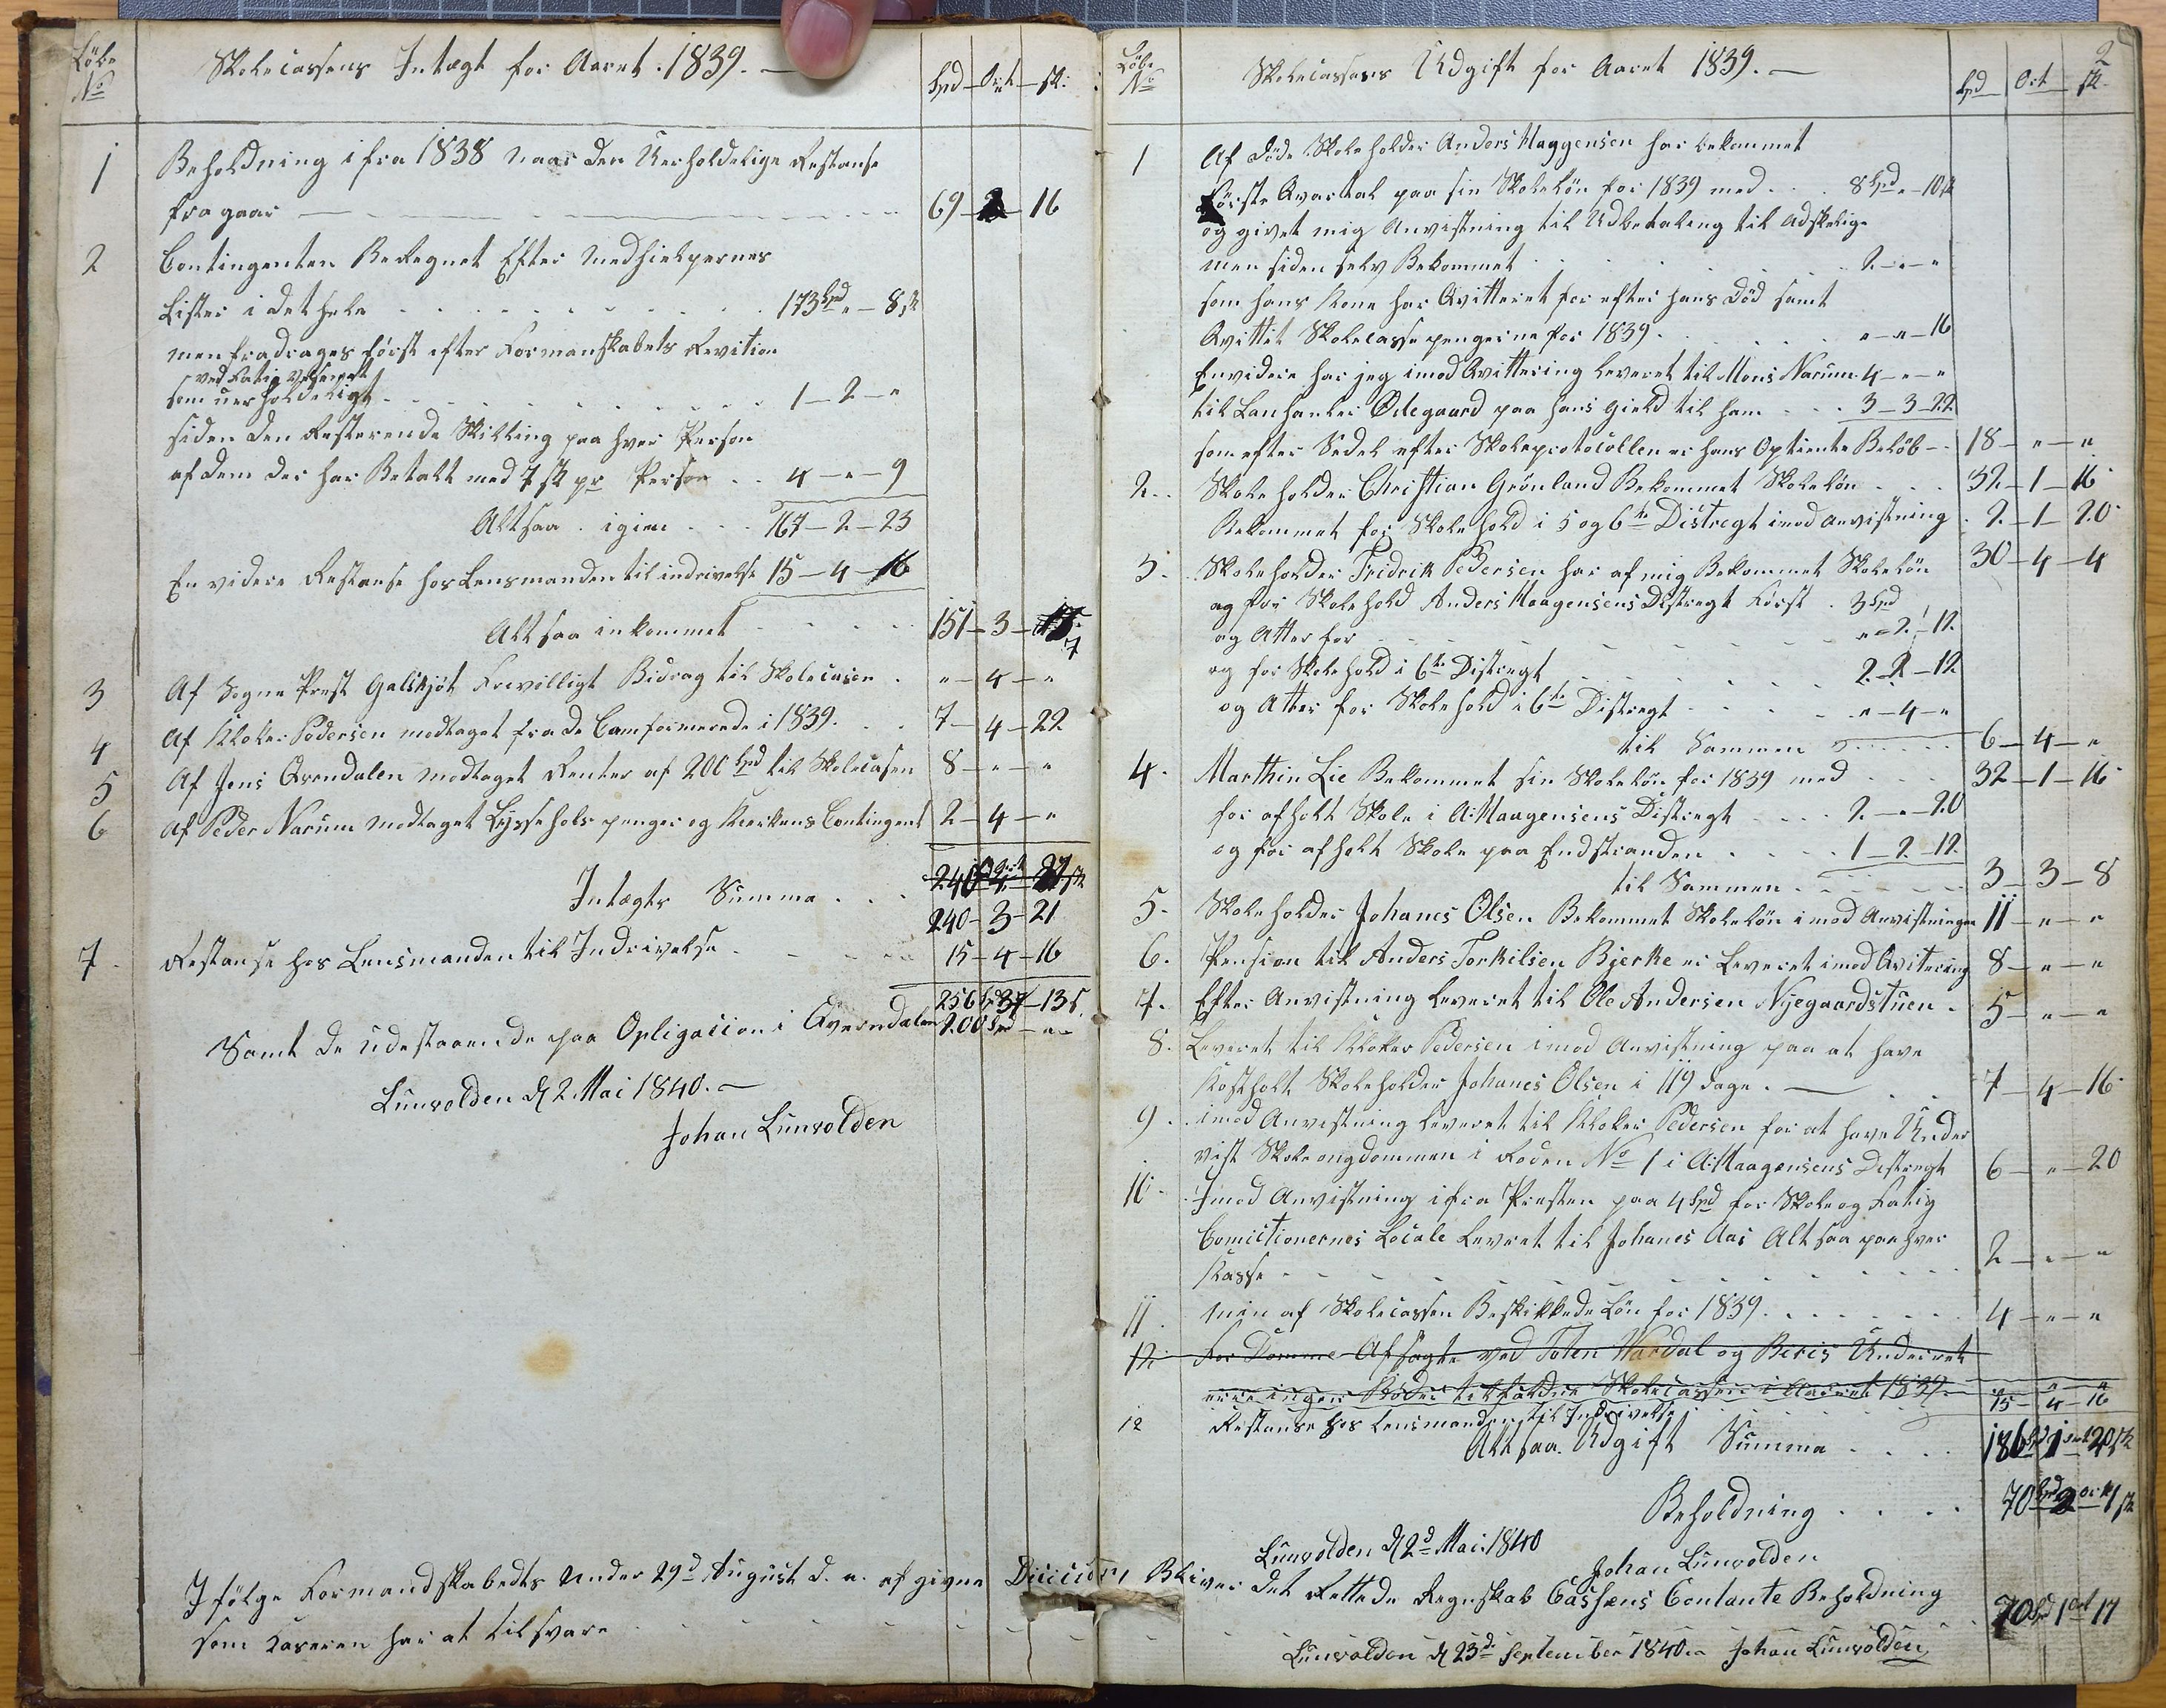 Löbe
No
Skolecassens Intægt for Aaret 1839. —
Spd – Ort – sk.
1 Beholdning ifra 1838 naar den Uerholdelige Restanse
fragaar — 69 – 2 – 16
2 Contingenten Beregnet Efter Medhielpernes
Lister i det hele . . . 173 Spd „ – 8 sk
men fradrages först efter Formanskabets Revition
ved Fatig Vesenet
som uerholdeligt . . . 1 – 2 – „
siden den Resterende Skilling paa hver Person
af dem der har Betalt med 7 sk pr Person . . 4 – „ – 9
Altsaa igien . . . 167 – 2 – 23
En videre Restanse hos Lensmanden til indrivelse 15 – 4 – 16
Altsaa inkommet . . . 151 – 3 – 7
3 Af Sogne Prest Galskjöt Frevilligt Bidrag til Skolecasen . „ – 4 – „
4 Af Kloker Pedersen modtaget fra de Comformerede i 1839. . . 7 – 4 – 22
5 Af Jens Qvendalen modtaget Renter af 200 Spd til Skolecasen 8 – „ – „
6 Af Peder Narum modtaget Lyssehols penger og Kierkens Contingent 2 – 4 – „
Intægts Summa . . .
240 – 3 – 21
7. Restanse hos Lensmanden til Indrivelse . . . 15 – 4 – 16
256 Spd 3 – 13 s.
Samt de udestaaende paa Opligation i Qverndalen 200 Spd – „ –
Lunvolden d 2 Mai 1840. —
Johan Lunvolden
2
Löbe
No
Skolecassens Udgift for Aaret 1839. —
Spd Ort sk.
1 Af döde Skoleholder Anders Haagensen har bekommet
Förste Qvartal paa sin Skolelön for 1839 med . . 8 Spd „ – 10 sk
og givet mig Anvistning til Udbetaling til Adskelige
men siden selv Bekommet . . . 2 – „ – „
som hans Kone har Qvitteret for efter hans död samt
Qvittet Skolecassepengerne for 1839 . . . „ – „ – 16
Envidere har jeg imod Qvittering leveret til Mons Narum 4 – „ – „
til Lanhanler Ödegaard paa hans gield til ham . . . 3 – 3 – 22
som efter Sedel efter Skoleprotocollen er hans Optiente Belöb – 18 – „ – „
2. Skoleholder Christian Grönland Bekommet Skolelön . . . 32 – 1 – 16
Bekommet for Skolehold i 5 og 6te Distregt imod anvistning . 2 – 1 – 20
3. Skoleholder Fridrik Pedersen har af mig Bekommet Skolelön 30 – 4 – 4
og for Skolehold Anders Haagensens Distregt Först . 3 Spd
og Atter for . . . „ – 2 – 12
og for Skolehold i 6te Distregt . . . 2 – 2 – 12
og Atter for Skolehold i 6te Distregt . . . „ – 4 – „
til Sammen . . . 6 – 4 – „
4. Marthin Lie Bekommet sin Skolelön for 1839 med . . . 32 – 1 – 16
for afholt Skole i A: Haagensens Distregt . . . 2 – „ – 20
og for afholt Skole paa Endstranden . . . 1 – 2 – 12
til Sammen . . . 3 – 3 – 8
5. Skoleholder Johanes Olsen Bekommet Skolelön imod Anvistninger 11 – „ – „
6. Pension til Anders Torkilsen Bjerke er Leveret imod Qvitering 8 – „ – „
7. Efter Anvistning leveret til Ole Andersen Nÿegaardstuen . 5 – „ – „
8. Leveret til Kloker Pedersen imod Anvistning paa at have
Kostholt Skoleholder Johanes Olsen i 119 dage. — 7 – 4 – 16
9. imod Anvistning leveret til Kloker Pedersen for at have Under
vist Skoleungdommen i Roden No 1 i A: Haagensens Distregt 6 – „ – 20
10. Imod Anvistning ifra Presten paa 4 Spd for Skole og Fatig
Comistionernes Locale Levret til Johanes Aas Altsaa paa hver
Kasse . . . 2 – „ – „
11. min af Skolecassen Beskikkede Lön for 1839 . . . 4 – „ – „
12. For Domme Afsagte ved Toten Vardal og Biris Underret
ere ingen Böder tilfaldne Skolecassen i Aaret 1839 – „ – „
12 Restanse hos Lensmanden til Indrivelse . . . 15 – 4 – 16
Altsaa Udgift Summa . . . 186 Spd 1 ort 20 sk
Beholdning . . . 70 Spd 2 Ort 1 sk
Lunvolden d 2d Mai 1840
Johan Lunvolden
Ifölge Formandskabedts under 29d August d. a. afgivne Bliver det Rettede Regnskab Cassens Contante Beholdning
som Kaseren har at tilsvare . . . 70 Spd 1 Ort 17
Lunvolden d 23d September 1840 Johan Lunvolden